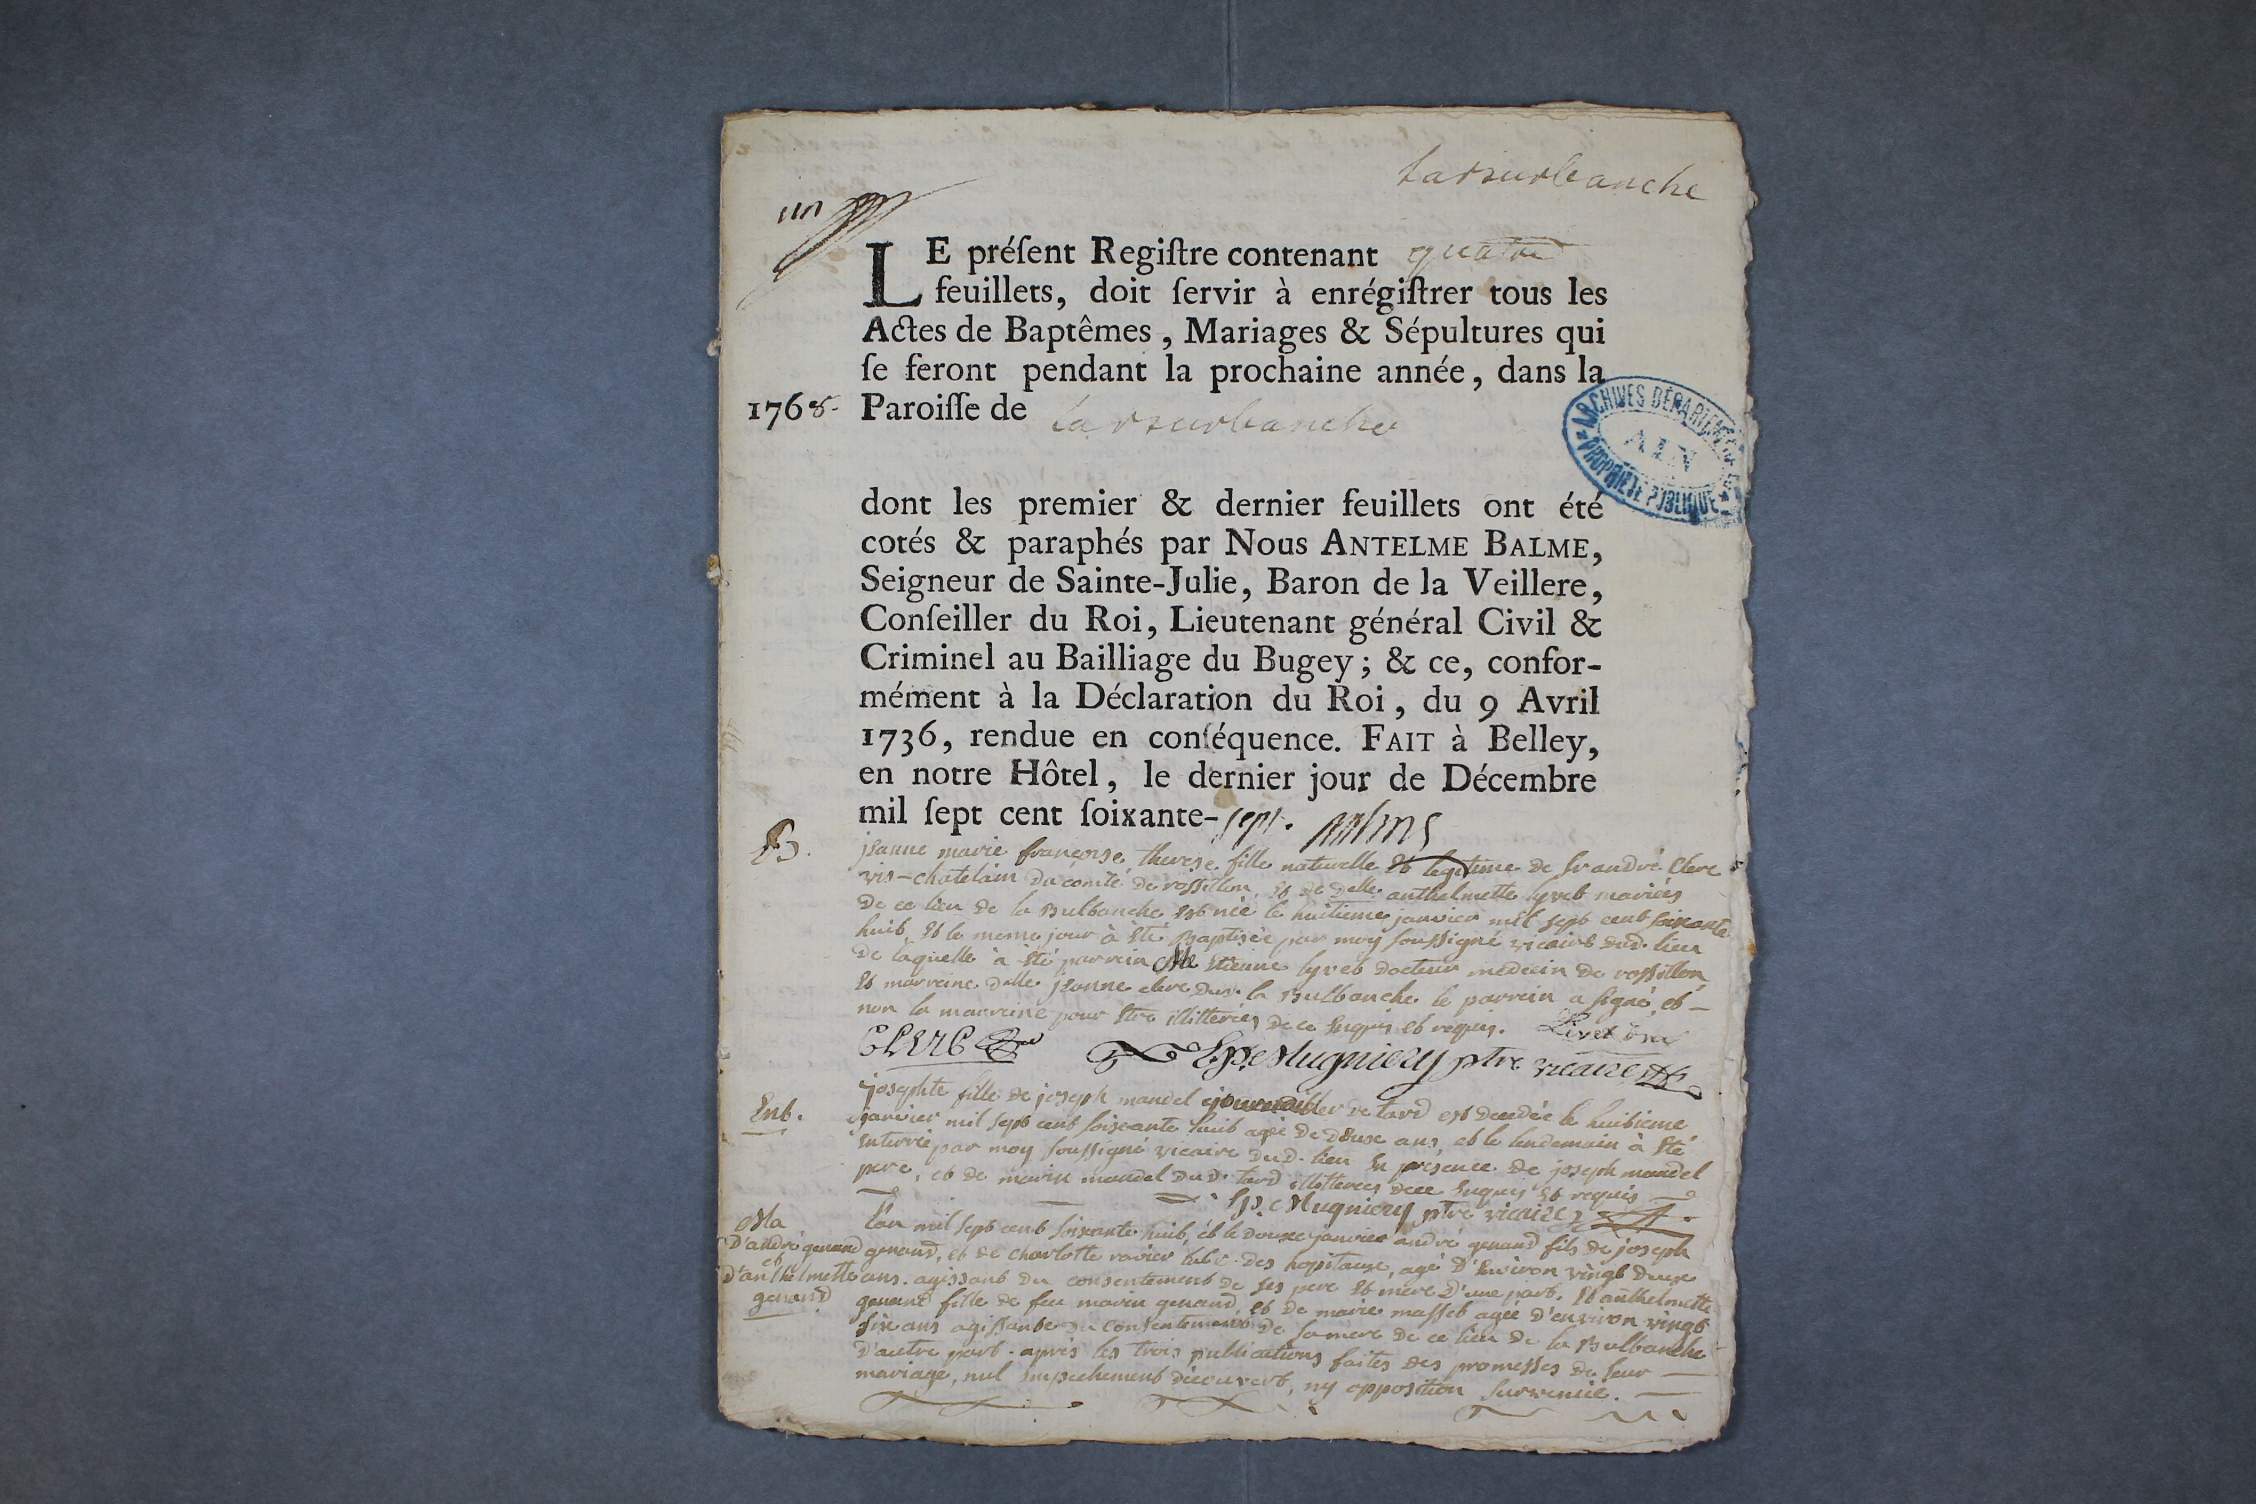 un
Larsurbanche
LE préſent Regiſtre contenant quatre
feuillets, doit ſervir à enrégiſtrer tous les
Actes de Baptêmes, Mariages & Sépultures qui
ſe feront pendant la prochaine année, dans la
1768. Paroiſſe de Larsurbanche
ARCHIVES DÉPARTEMENTALES
AIN
PROPRIÉTÉ PUBLIQUE
dont les premier & dernier feuillets ont été
cotés & paraphés par Nous ANTELME BALME,
Seigneur de Sainte-Julie, Baron de la Veillere,
Conſeiller du Roi, Lieutenant général Civil &
Criminel au Bailliage du Bugey; & ce, confor-
mément à la Déclaration du Roi, du 9 Avril
1736, rendue en conſéquence. FAIT à Belley,
en notre Hôtel, le dernier jour de Décembre
mil ſept cent ſoixante-sept.
B.
jeanne marie françoise therese fille naturelle et legitime de Sr andré Clerc
vis-chatelain du comté de rossillon, et de delle anthelmette lyvet mariés
de ce lieu de la Bulbanche est née le huitieme janvier mil sept cent soixante
huit, et le meme jour à été Baptisée par moy soussigné vicaire dud. lieu
de laquelle à été parrein Me etienne lyvet docteur medecin de rossillon
et marreine delle jeanne clerc dud. la Bulbanche le parrein a signé, et
non la marreine pour etre illitterée, de ce enquis et requis. Livet
CLERC Mugniery ptre vicaire
Ent.
josephte fille de joseph mandel de tard est decedée le huitieme
janvier mil sept cent soixante huit agée de douse ans, et le lendemain à été
enterrée par moy soussigné vicaire dud. lieu en présence de joseph mandel
pere, et de marin mandel dud. tard illitterés dece enquis et requis
Mugniery ptre vicaire
Ma
D'andré genand
et
D'anthelmette
genand
L'an mil sept cent soixante huit, et le douze janvier andré genand fils de joseph
genand, et de charlotte ravier des hopitaux, agé d'environ vingt deux
ans. agissant du consentement de ses pere et mere d'une part. et anthelmette
genand fille de feu marin genand, et de marie masset agée d'environ vingt
six ans agissante du consentement de sa mere de ce lieu de la Bulbanche
d'autre part. après les trois publications faites des promesses de leur
mariage, nul empechement découvert, ny opposition survenuë.